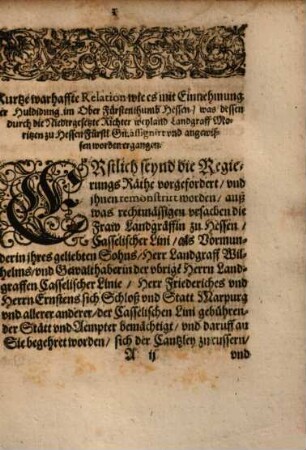 Kurtze warhaffte Relation wie es mit Einnehmung
der Huldidung im Ober Fürstenthumb Hessen / was dessen
durch die Nidergesetzte Richter weyland Landgraff Mo-
ritzen zu Hessen Fürstl. Gn. assignirt vnd angewis-
sen worden ergangen.
ERstlich seynd die Regie-
rungs Räthe vorgefordert / vnd
ihnen remonstrirt worden / auß
was rechtmässigen vrsachen die
Fraw Landgräffin zu Hessen /
Casselischer Lini / als Vormun-
derin jhres geliebten Sohns / Herr Landgraff Wil-
helms / vnd Gewalthaberin der vbrige Herrn Land-
graffen Casselischer Linie / Herr Friederiches vnd
Herrn Ernstens sich Schloß vnd Statt Marpurg
vnd allerer anderer / der Casselischen Lini gebühren-
der Stätt vnd Aempter bemächtigt / vnd darauff an
Sie begehret worden / sich der Cantzley zu eussern /
A ij vnd